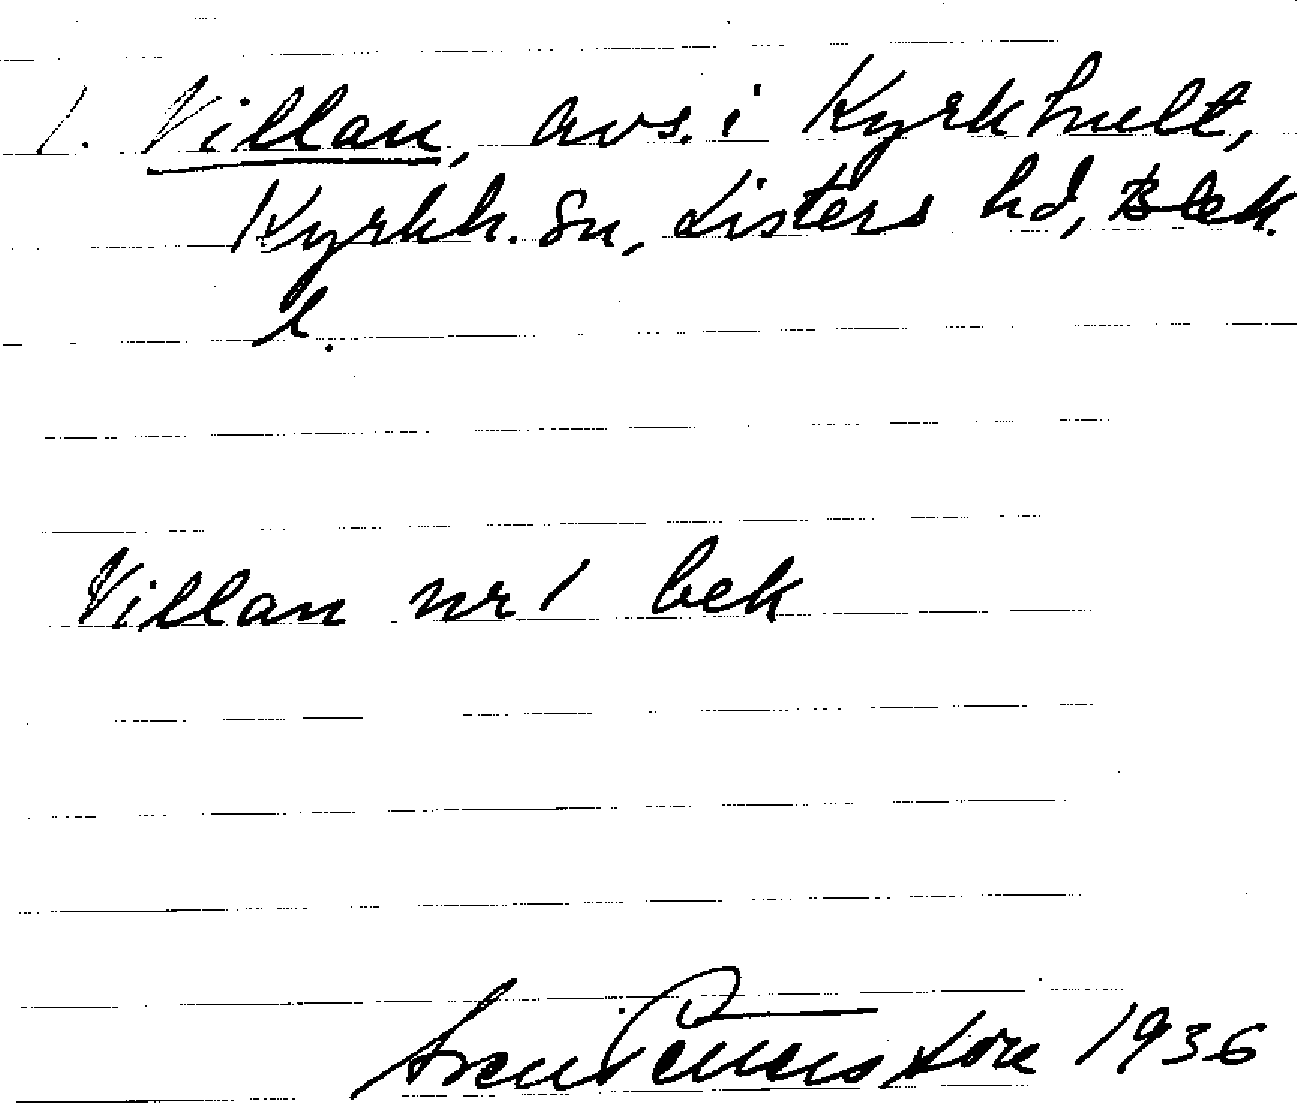 1. Villan, avs. i Kyrkhult,
Kyrkh. sn, Listers hd, Blek.
l.
Villan nr 1 bek
Sven Pettersson 1936